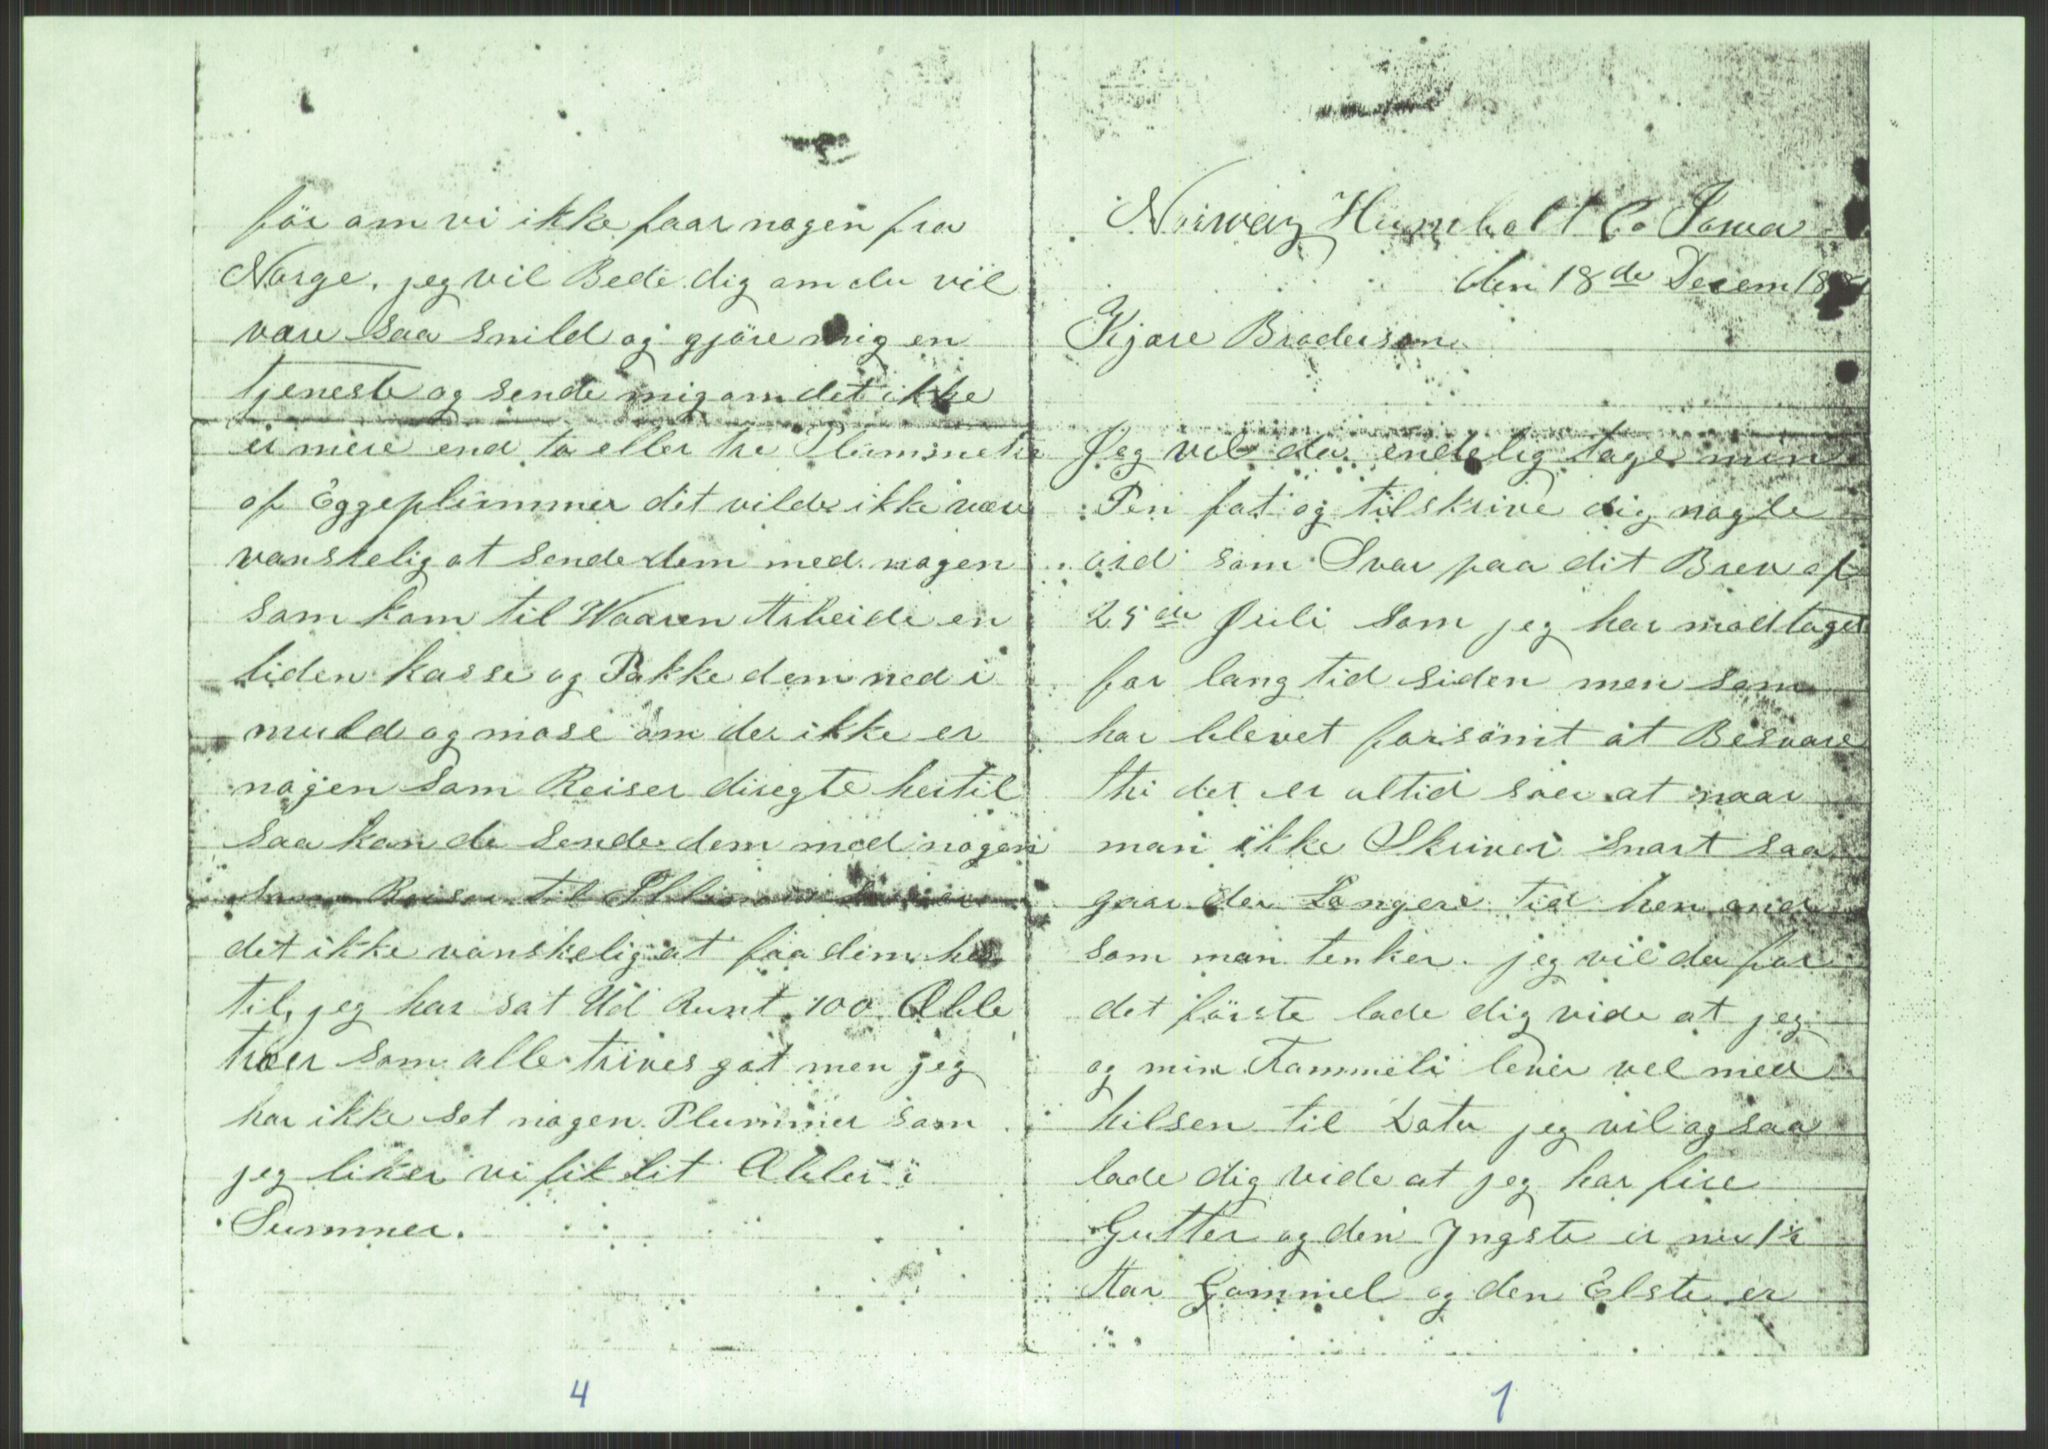 før om vi ikke faar nogen fra
Norge. jeg vil Bede dig om du vil
være saa snild og gjøre mig en
tjeneste og sende mig om det ikke
er mere end to eller tre
af Eggeplummer det vilde ikke være
vanskelig at sende dem med nogen
som kom til Vaaren Arbeide en
liden kasse og Pakke dem ned i
muld og mose om der ikke er
nogen som Reiser diregte hertil
saa kan du sende dem med nogen
som Reiser til
det ikke vanskelig at faa dem her
til, jeg har sat Ud Runt 100 Æble
træer som alle trives got men jeg
har ikke set nogen Plummer som
jeg liker vi fik lit Æbler i
Summer.
4
Norway Humbolt Co Iowa
den 18de Decem
Kjære Brodersøn
Jeg vil da endelig tage min
Pen fat og tilskrive dig nogle
ord som Svar paa dit Brev af
25de Juli som jeg har modtaget
for lang tid siden men som
har blevet forsømt at Besvare
thi det er altid saa at naar
man ikke Skriver snart saa
gaar der Længere tid hen end
som man tenker. jeg vil da for
det første lade dig vide at jeg
og min Fammeli lever vel med
hilsen til Dato jeg vil og saa
lade dig vide at jeg har fire
Gutter og den Yngste er nu 1½
Aar Gammel og den Elste er
1